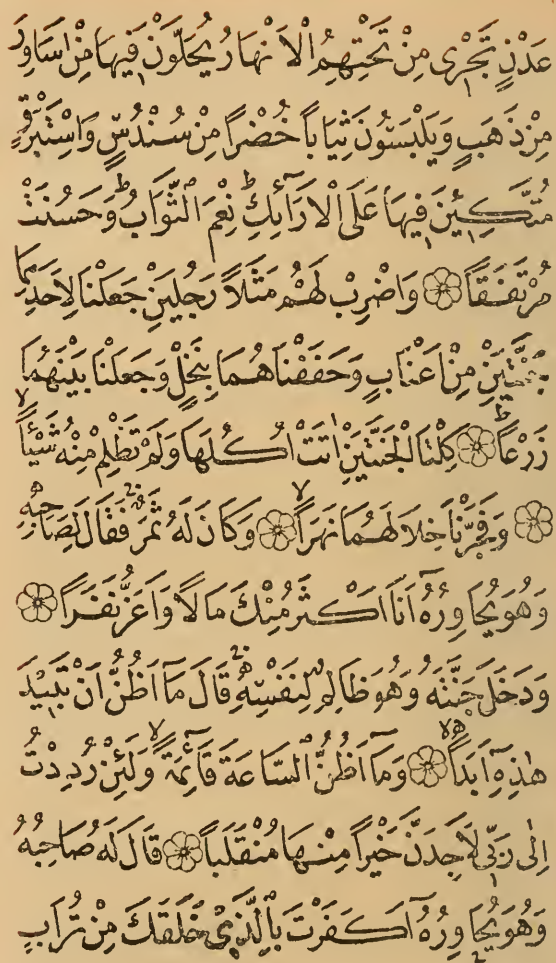 عَدْنٍ تَجْرِى مِنْ تَحْتِهِمُ الْاَنْهَارُ يُحَلَّوْنَ فِيهَا مِنْ اَسَاوِرَ
مِنْ ذَهَبٍ وَيَلْبَسُونَ ثِيَابًا خُضْرًا مِنْ سُنْدُسٍ وَاِسْتَبْرَقٍ
مُتَّكِـِٔينَ فِيهَا عَلَى الْاَرَآئِكِ ط نِعْمَ الثَّوَابُ ط وَحَسُنَتْ
مُرْتَفَقًا ۝ وَاضْرِبْ لَهُمْ مَثَلًا رَجُلَيْنِ جَعَلْنَا لِاَحَدِهِمَا
جَنَّتَيْنِ مِنْ اَعْنَابٍ وَحَفَفْنَاهُمَا بِنَخْلٍ وَجَعَلْنَا بَيْنَهُمَا
زَرْعًا ط ۝ كِلْتَا الْجَنَّتَيْنِ اٰتَتْ اُكُلَهَا وَلَمْ تَظْلِمْ مِنْهُ شَيْـًٔا لا
۝ وَفَجَّرْنَا خِلَالَهُمَا نَهَرًا لا ۝ وَكَانَ لَهُ ثَمَرٌ فَقَالَ لِصَاحِبِهِ
وَهُوَ يُحَاوِرُهُ اَنَا اَكْثَرُ مِنْكَ مَالًا وَاَعَزُّ نَفَرًا ۝
وَدَخَلَ جَنَّتَهُ وَهُوَ ظَالِمٌ لِنَفْسِهِ قَالَ مَآ اَظُنُّ اَنْ تَبِيدَ
هٰذِهِ اَبَدًا لا ۝ وَمَآ اَظُنُّ السَّاعَةَ قَآئِمَةً لا وَلَئِنْ رُدِدْتُ
اِلٰى رَبِّى لَاَجِدَنَّ خَيْرًا مِنْهَا مُنْقَلَبًا ۝ قَالَ لَهُ صَاحِبُهُ
وَهُوَ يُحَاوِرُهُ اَكَفَرْتَ بِالَّذِى خَلَقَكَ مِنْ تُرَابٍ